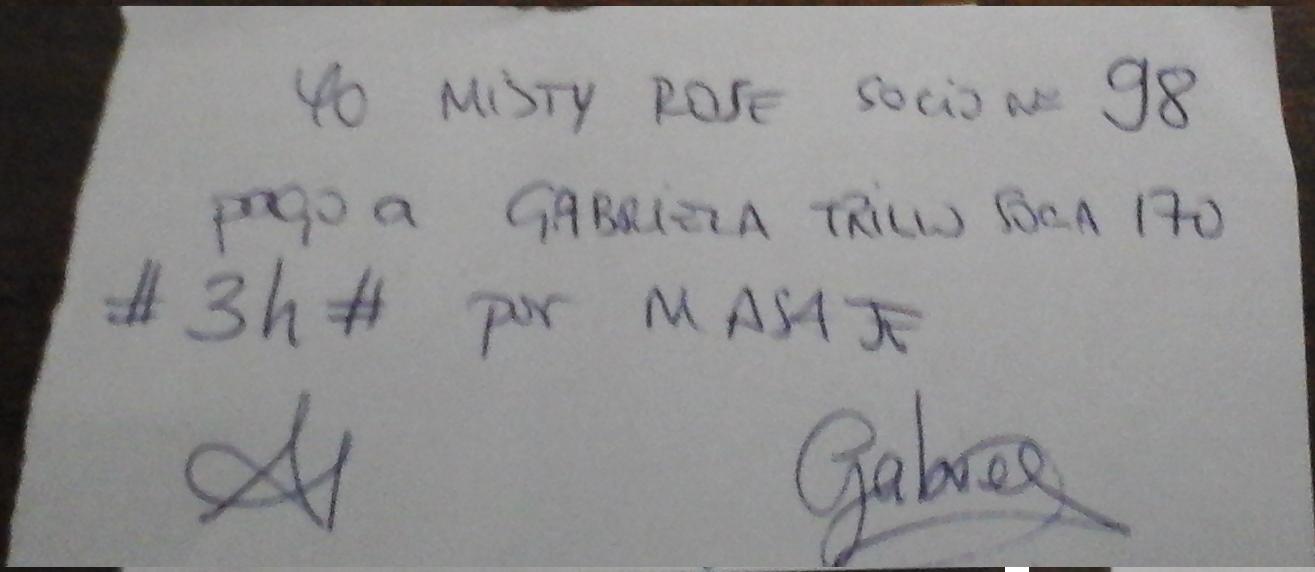 Yo MISTY ROSE socio Nº 98
pago a GABRIELA TRILLO SOCIA 170
# 3h # por MASAJE
Gabriel